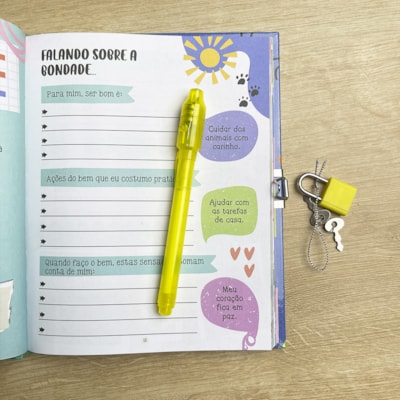 FALANDO SOBRE A
BONDADE...
Para mim, ser bom é:
Cuidar dos
animais com
carinho.
Ações do bem que eu costumo
Ajudar com
as tarefas
de casa.
Quando faço o bem, estas
conta de mim:
Meu
coração
fica em
paz.